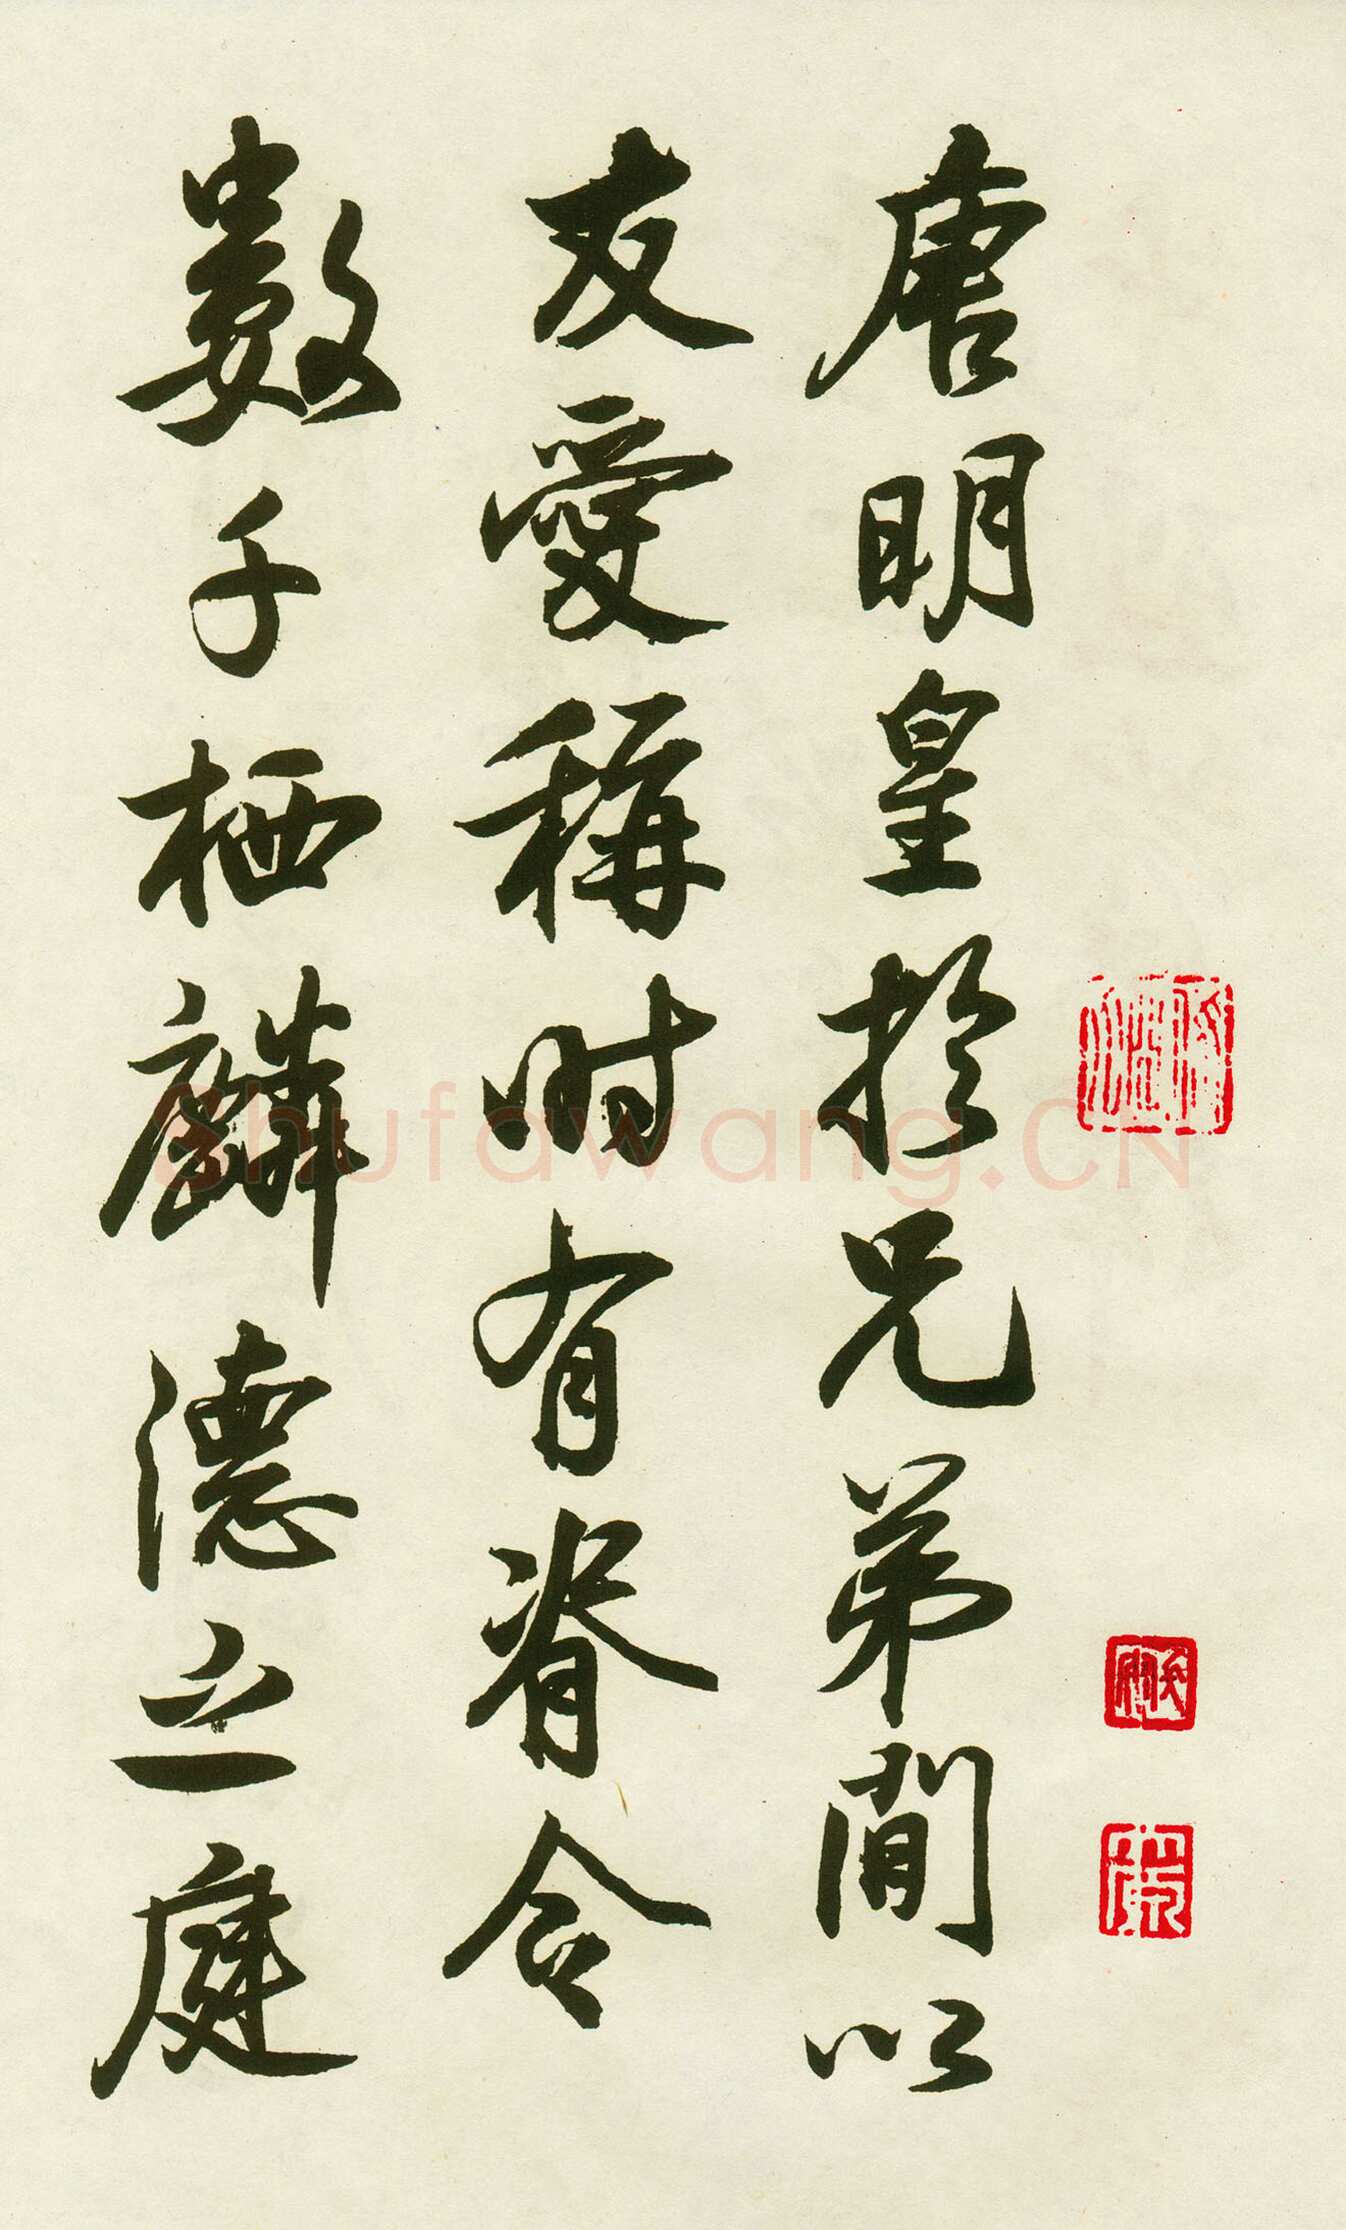 唐明皇於兄弟間以
友愛稱時有脊令
數千栖麟德之庭
Shufawang.CN